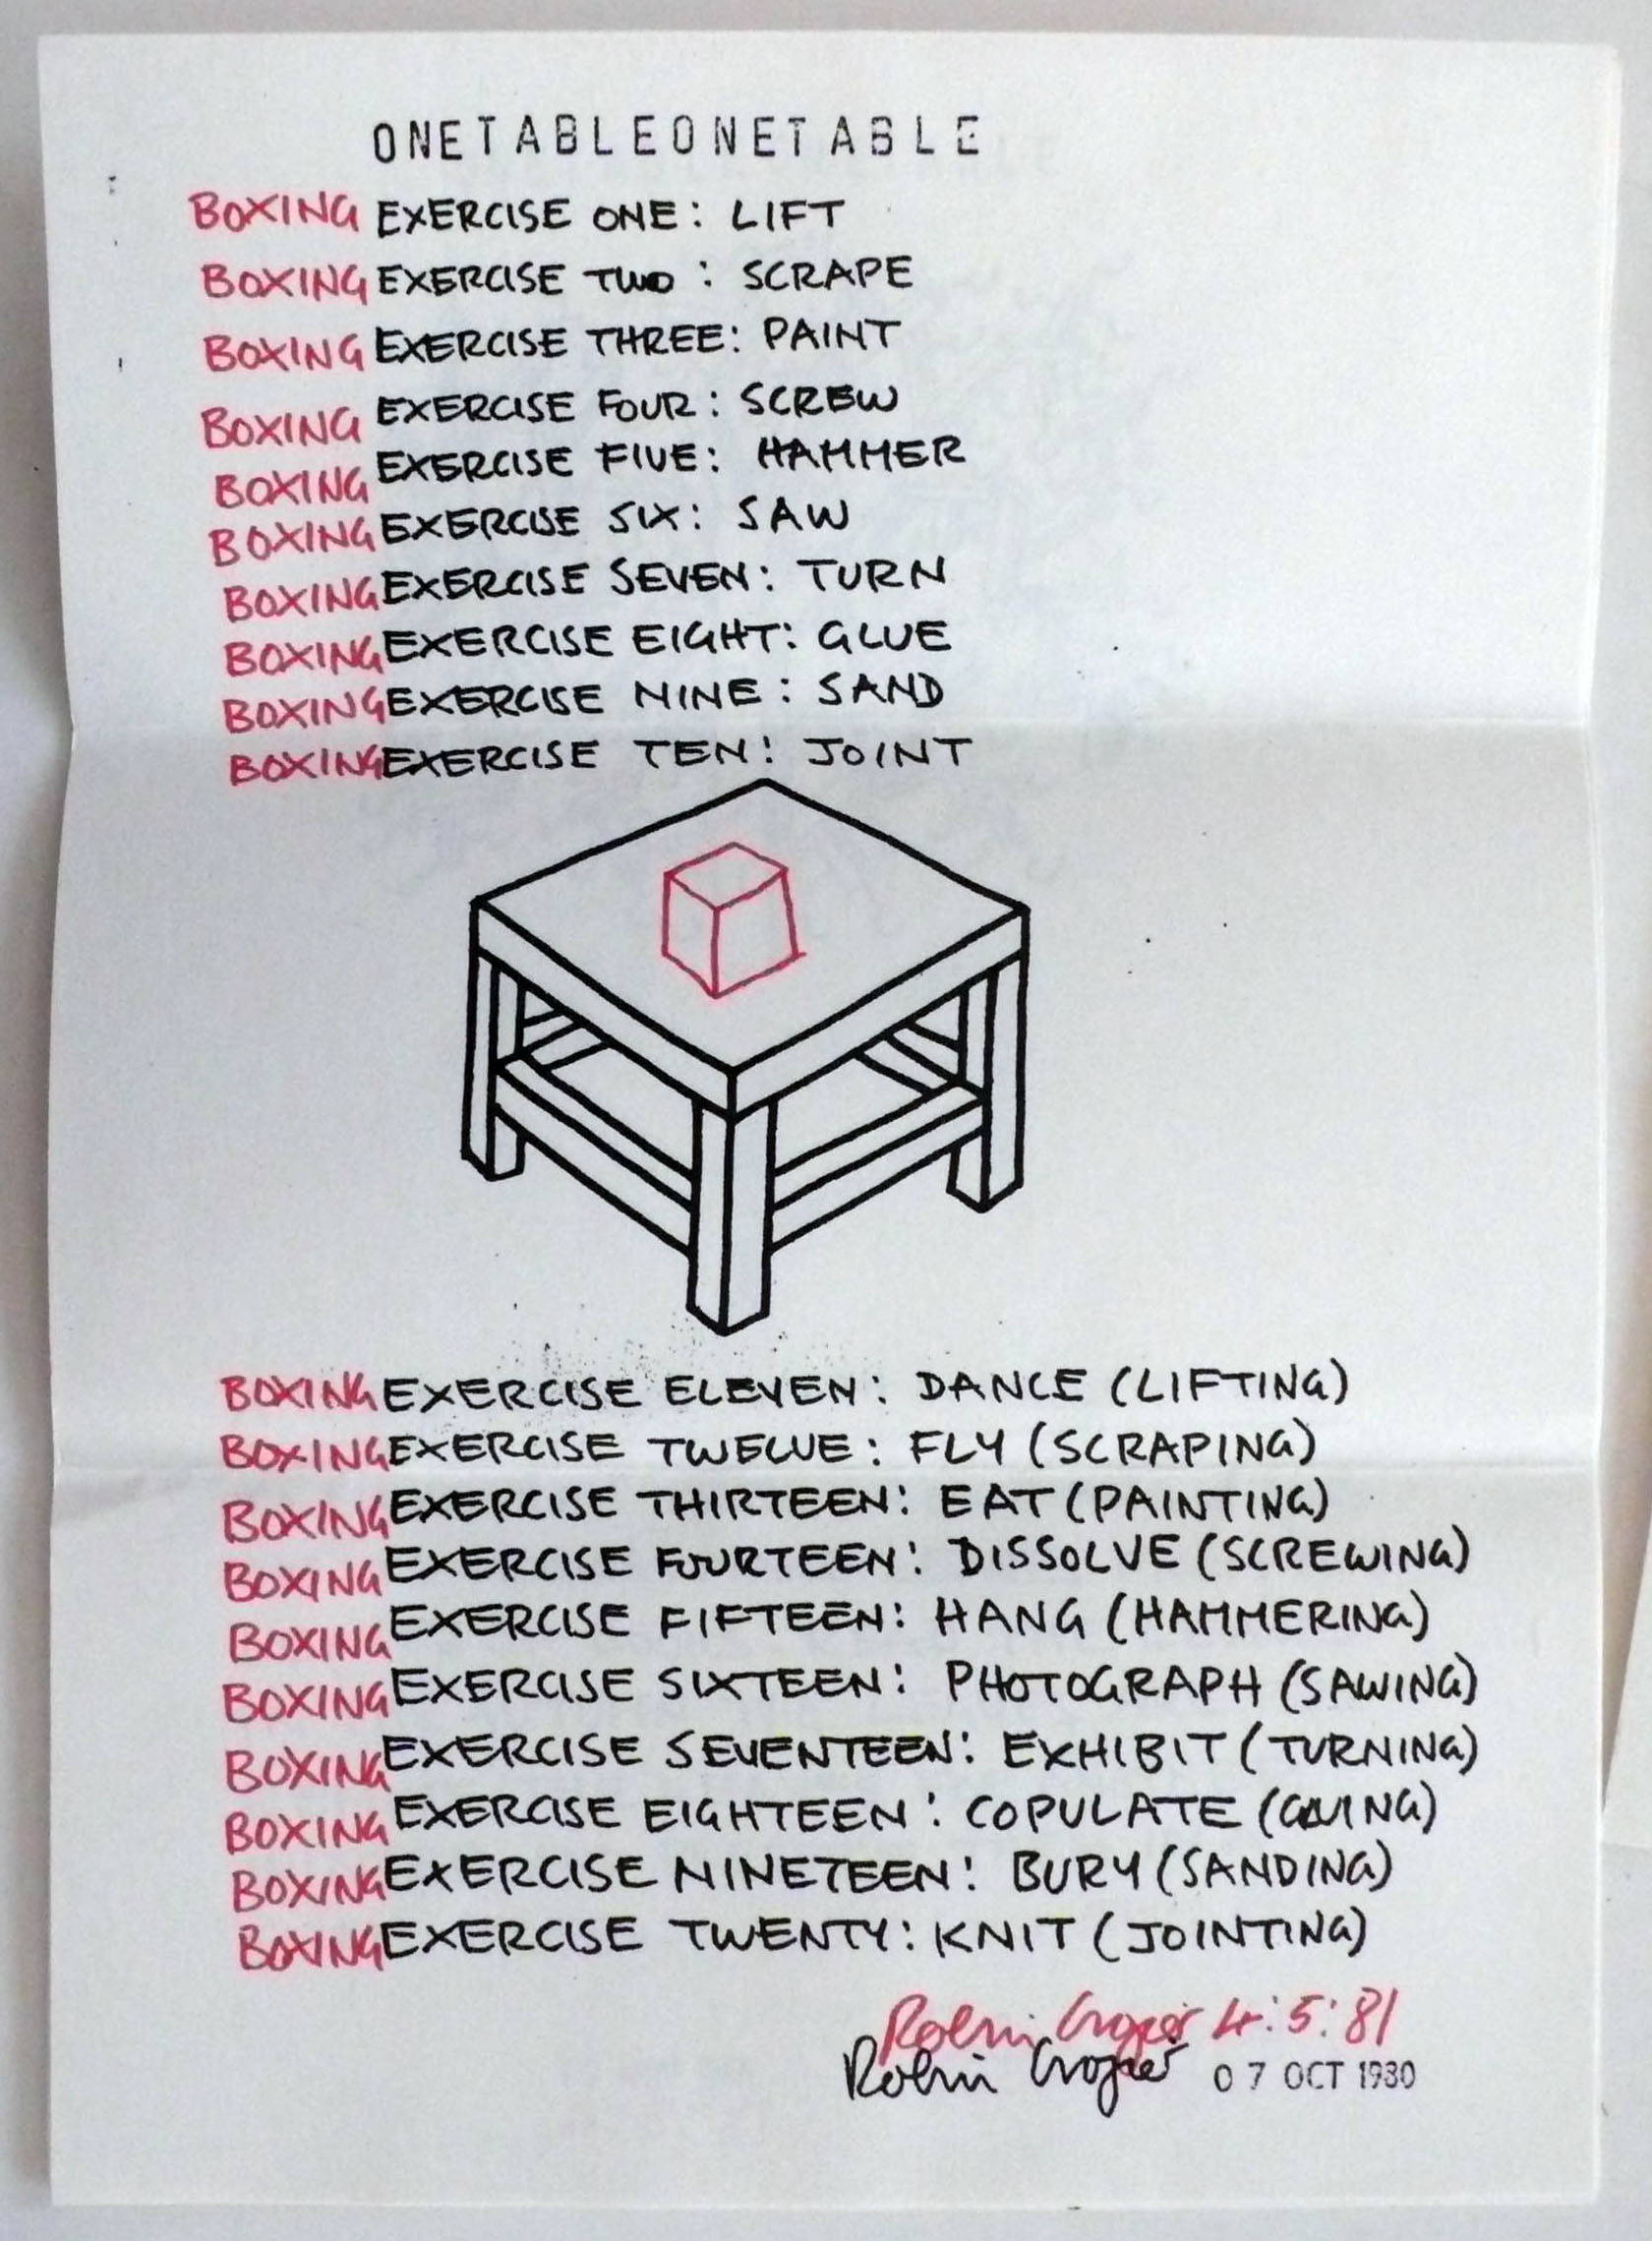 ONETABLEONETABLE
BOXING EXERCISE ONE: LIFT
BOXING EXERCISE TWO: SCRAPE
BOXING EXERCISE THREE: PAINT
BOXING EXERCISE FOUR: SCREW
BOXING EXERCISE FIVE: HAMMER
BOXING EXERCISE SIX: SAW
BOXING EXERCISE SEVEN: TURN
BOXING EXERCISE EIGHT: GLUE
BOXING EXERCISE NINE: SAND
BOXING EXERCISE TEN: JOINT
BOXING EXERCISE ELEVEN: DANCE (LIFTING)
BOXING EXERCISE TWELVE: FLY (SCRAPING)
BOXING EXERCISE THIRTEEN: EAT (PAINTING)
BOXING EXERCISE FOURTEEN: DISSOLVE (SCREWING)
BOXING EXERCISE FIFTEEN: HANG (HAMMERING)
BOXING EXERCISE SIXTEEN: PHOTOGRAPH (SAWING)
BOXING EXERCISE SEVENTEEN: EXHIBIT (TURNING)
BOXING EXERCISE EIGHTEEN: COPULATE (GLUING)
BOXING EXERCISE NINETEEN: BURY (SANDING)
BOXING EXERCISE TWENTY: KNIT (JOINTING)
Robin Crozier 4:5:81
Robin Crozier 07 OCT 1980